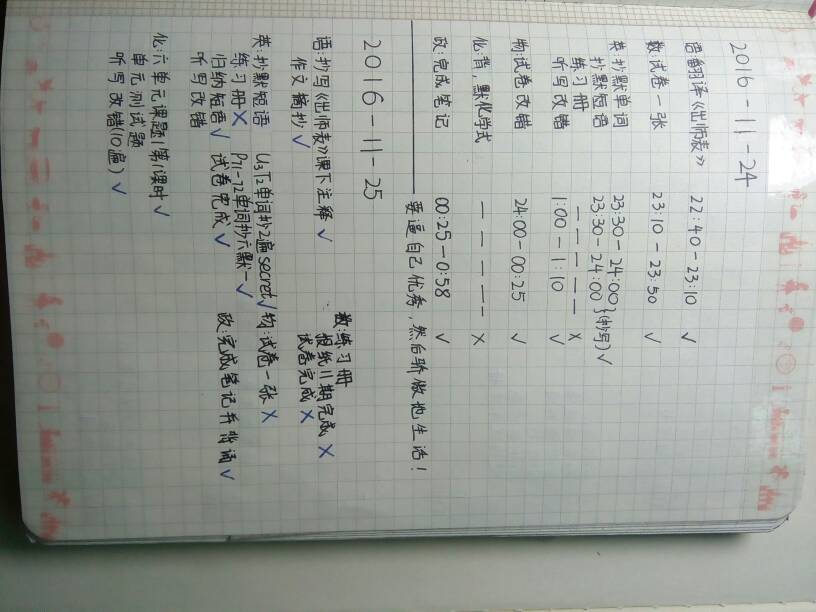 2016-11-24
语:翻译《出师表》 22:40-23:10 √
数:试卷一张 23:10-23:50 √
英:抄默单词 23:30-24:00
抄默短语 23:30-24:00 }(抄写) √
练习册 ————— ×
听写改错 1:00-1:10 √
物:试卷改错 24:00-00:25 √
化:背,默化学式 ————— ×
政:完成笔记 00:25-0:58 √
要逼自己优秀,然后骄傲地生活!
2016-11-25
语:抄写《出师表》课下注释 √
作文摘抄 √
数:练习册
报纸11期完成 ×
试卷完成 ×
英:抄默短语 U3T2单词抄2遍 secret √
练习册 × P71-72单词抄六默一 √
归纳短语 √ 试卷完成 √
听写改错
物:试卷一张 ×
政:完成笔记并背诵 √
化:六单元课题1第1课时 √
单元测试题
听写改错(10遍) √